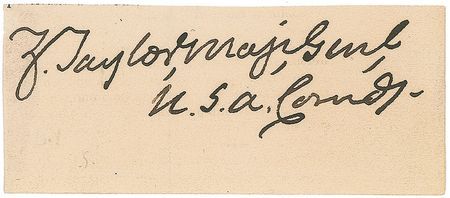 Z. Taylor Maj. Genl
U.S.A. Comdt.